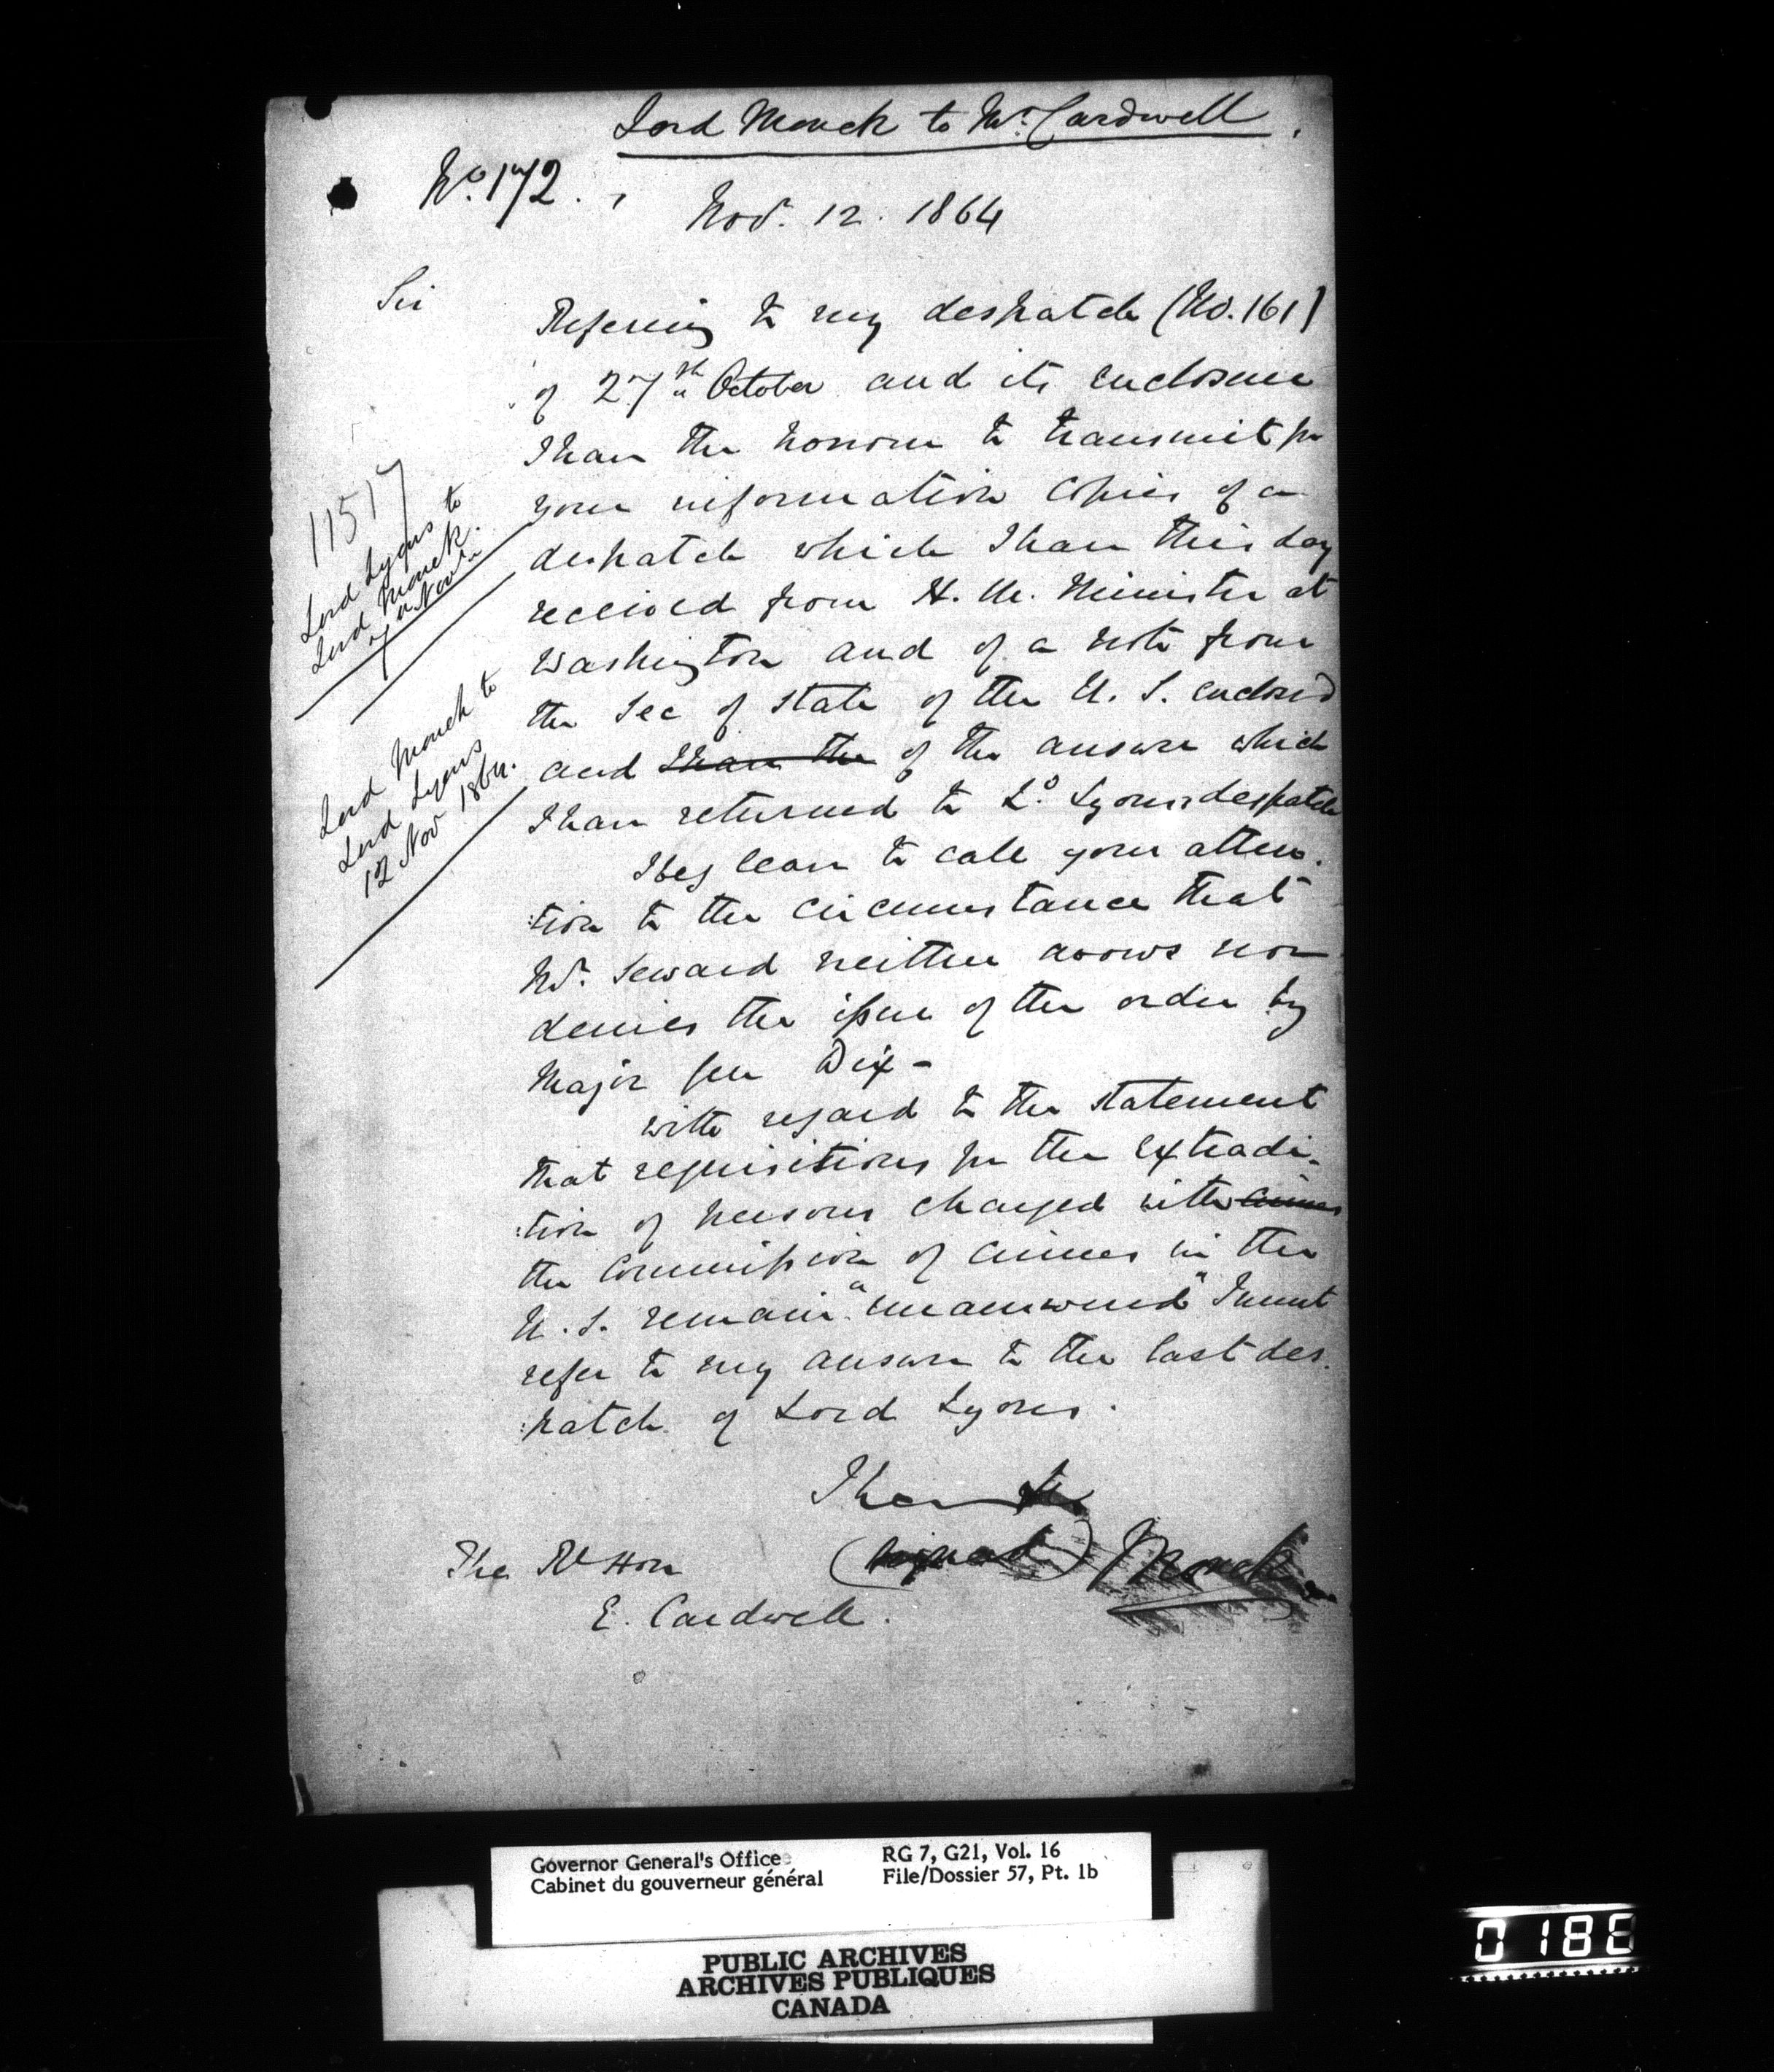 Lord Monck to Mr. Cardwell.
No. 172.
Nov. 12. 1864
Sir
Referring to my despatch (No. 161)
of 27th October and its enclosure
I have the honour to transmit for
your information copies of a
despatch which I have this day
received from H. M. Minister at
Washington and of a note from
the Sec of State of the U. S. enclosed
and I have the of the answer which
I have returned to Ld. Lyons's despatch
I beg leave to call your atten-
:tion to the circumstance that
Mr. Seward neither avows nor
denies the issue of the order by
Major Gen Dix -
With regard to the statement
that requisitions for the extradi-
:tion of persons charged with crimes
the commission of crimes in the
U. S. remain "unanswered" I must
refer to my answer to the last des-
:patch of Lord Lyons.
I have &c
(signed) Monck
The Rt Hon
E. Cardwell.
11517
Lord Lyons to
Lord Monck.
7 Nov
Lord Monck to
Lord Lyons
12 Nov 1864.
Governor General's Office
Cabinet du gouverneur général
RG 7, G21, Vol. 16
File/Dossier 57, Pt. 1b
PUBLIC ARCHIVES
ARCHIVES PUBLIQUES
CANADA